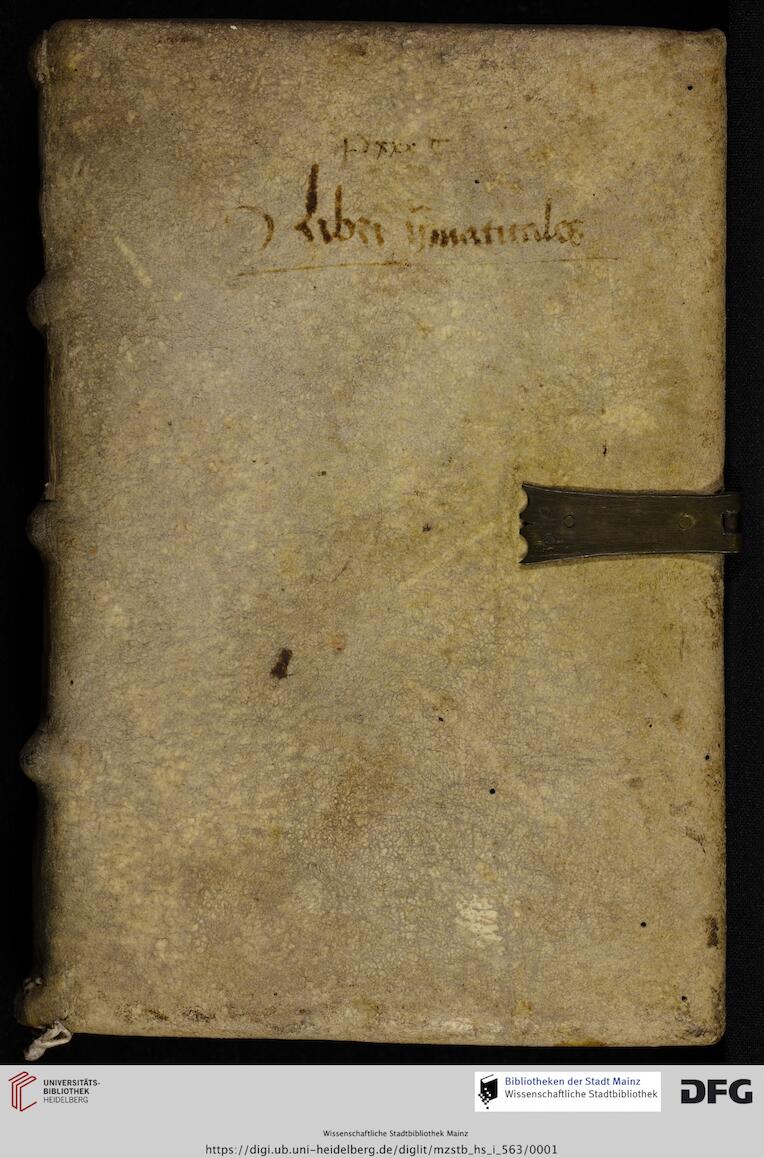 Libri
UNIVERSITÄTS-
BIBLIOTHEK
HEIDELBERG
Bibliotheken der Stadt Mainz
Wissenschaftliche Stadtbibliothek
DFG
Wissenschaftliche Stadtbibliothek Mainz
https://digi.ub.uni-heidelberg.de/diglit/mzstb_hs_i_563/0001